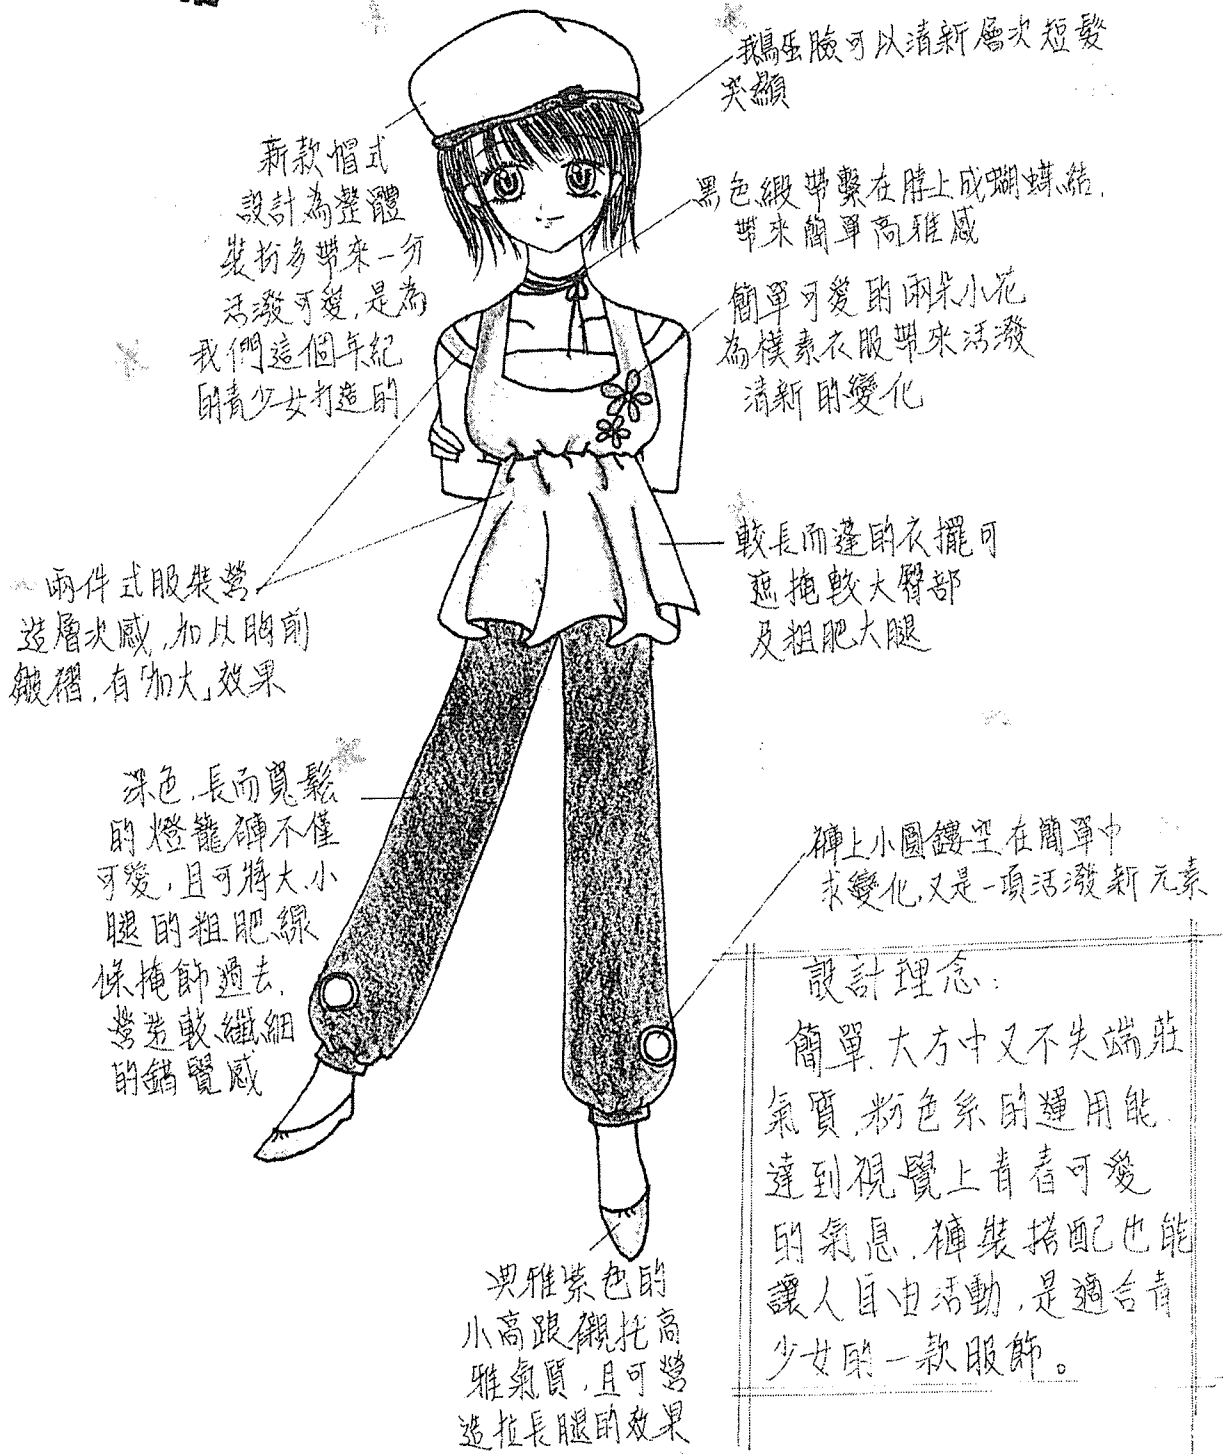 鵝蛋臉可以清新層次短髮
突顯
新款帽式
設計為整體
裝扮多帶來一分
活潑可愛,是為
我們這個年紀
的青少女打造的
黑色緞帶繫在脖上成蝴蝶結,
帶來簡單高雅感
簡單可愛的兩朵小花
為樸素衣服帶來活潑
清新的變化
較長而蓬的衣擺可
遮掩較大臀部
及粗肥大腿
兩件式服裝營
造層次感,加以胸前
皺褶,有「加大」效果
深色,長而寬鬆
的燈籠褲不僅
可愛,且可將大、小
腿的粗肥線
條掩飾過去,
營造較纖細
的錯覺感
褲上小圓鏤空在簡單中
求變化,又是一項活潑新元素
典雅紫色的
小高跟襯托高
雅氣質,且可營
造拉長腿的效果
設計理念:
簡單、大方中又不失端莊
氣質,粉色系的運用能
達到視覺上青春可愛
的氣息,褲裝搭配也能
讓人自由活動,是適合青
少女的一款服飾。